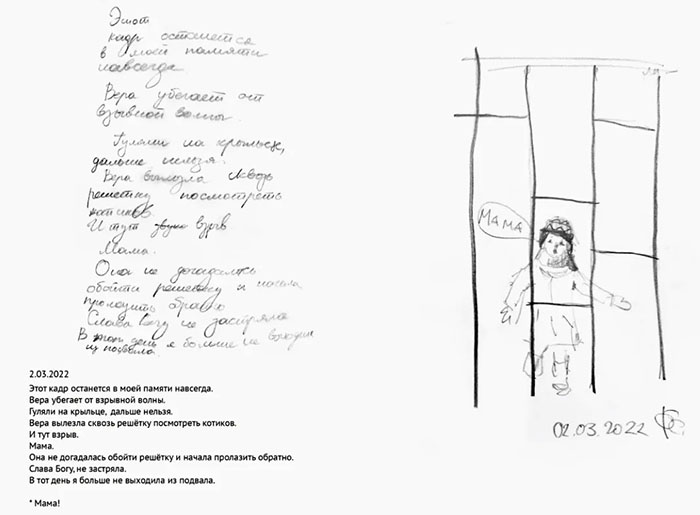 Этот
кадр останется
в моей памяти
навсегда.
Вера убегает от
взрывной волны.
Гуляли на крыльце,
дальше нельзя.
Вера вылезла сквозь
решетку посмотреть
котиков.
И тут звук взрыв
Мама.
Она не догадалась
обойти решетку и начала
пролазить обратно
Слава Богу не застряла
В этот день я больше не выходила
из подвала.
2.03.2022
Этот кадр останется в моей памяти навсегда.
Вера убегает от взрывной волны.
Гуляли на крыльце, дальше нельзя.
Вера вылезла сквозь решётку посмотреть котиков.
И тут взрыв.
Мама.
Она не догадалась обойти решётку и начала пролазить обратно.
Слава Богу, не застряла.
В тот день я больше не выходила из подвала.
* Мама!
МАМА
02.03.2022